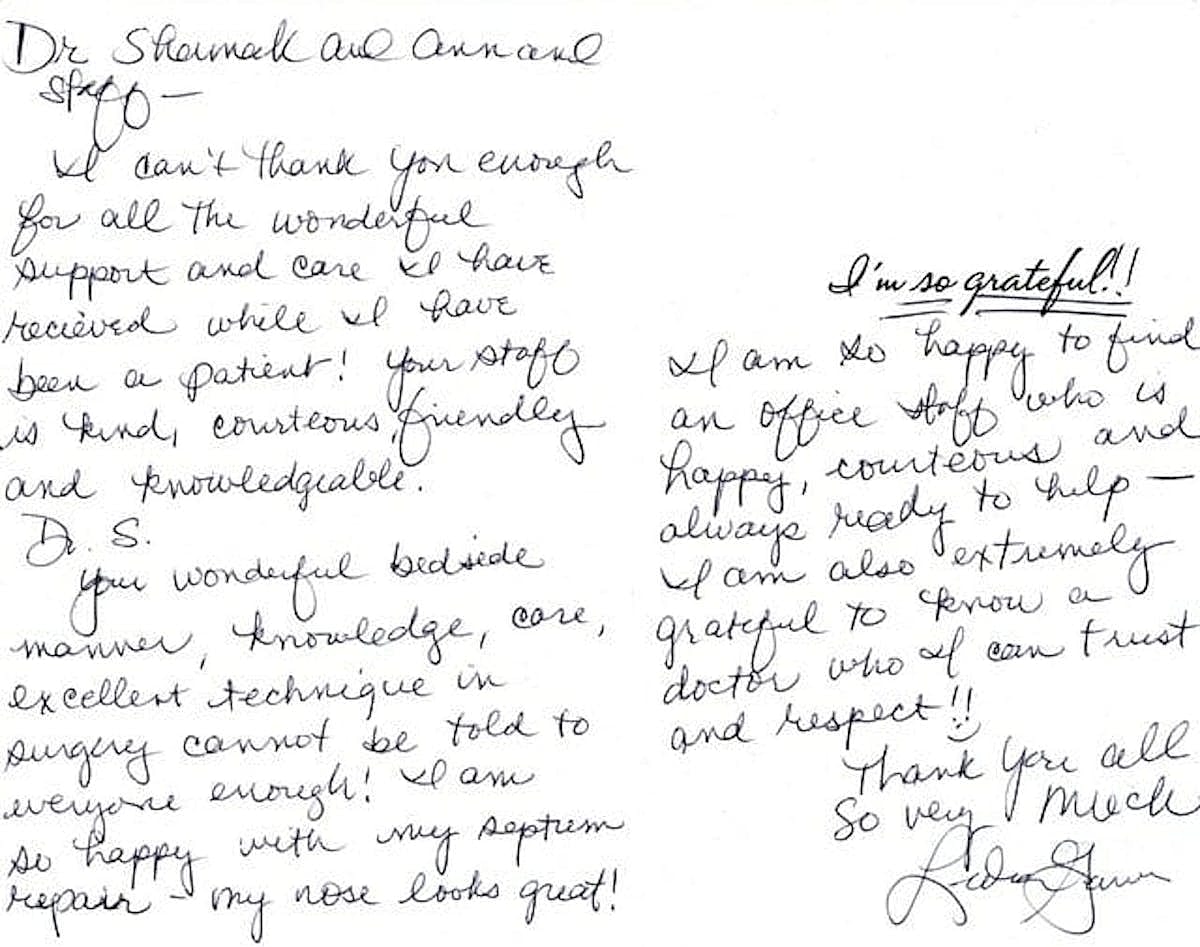 Dr Shamak and Ann and
staff —
I can't thank you enough
for all the wonderful
support and care I have
recieved while I have
been a patient! Your staff
is kind, courteous, friendly
and knowledgeable.
Dr. S.
Your wonderful bedside
manner, knowledge, care,
excellent technique in
surgery cannot be told to
everyone enough! I am
so happy with my septum
repair - my nose looks great!
I'm so grateful!!
I am so happy to find
an office staff who is
happy, courteous and
always ready to help —
I am also extremely
grateful to know a
doctor who I can trust
and respect!!
Thank you all
So very much